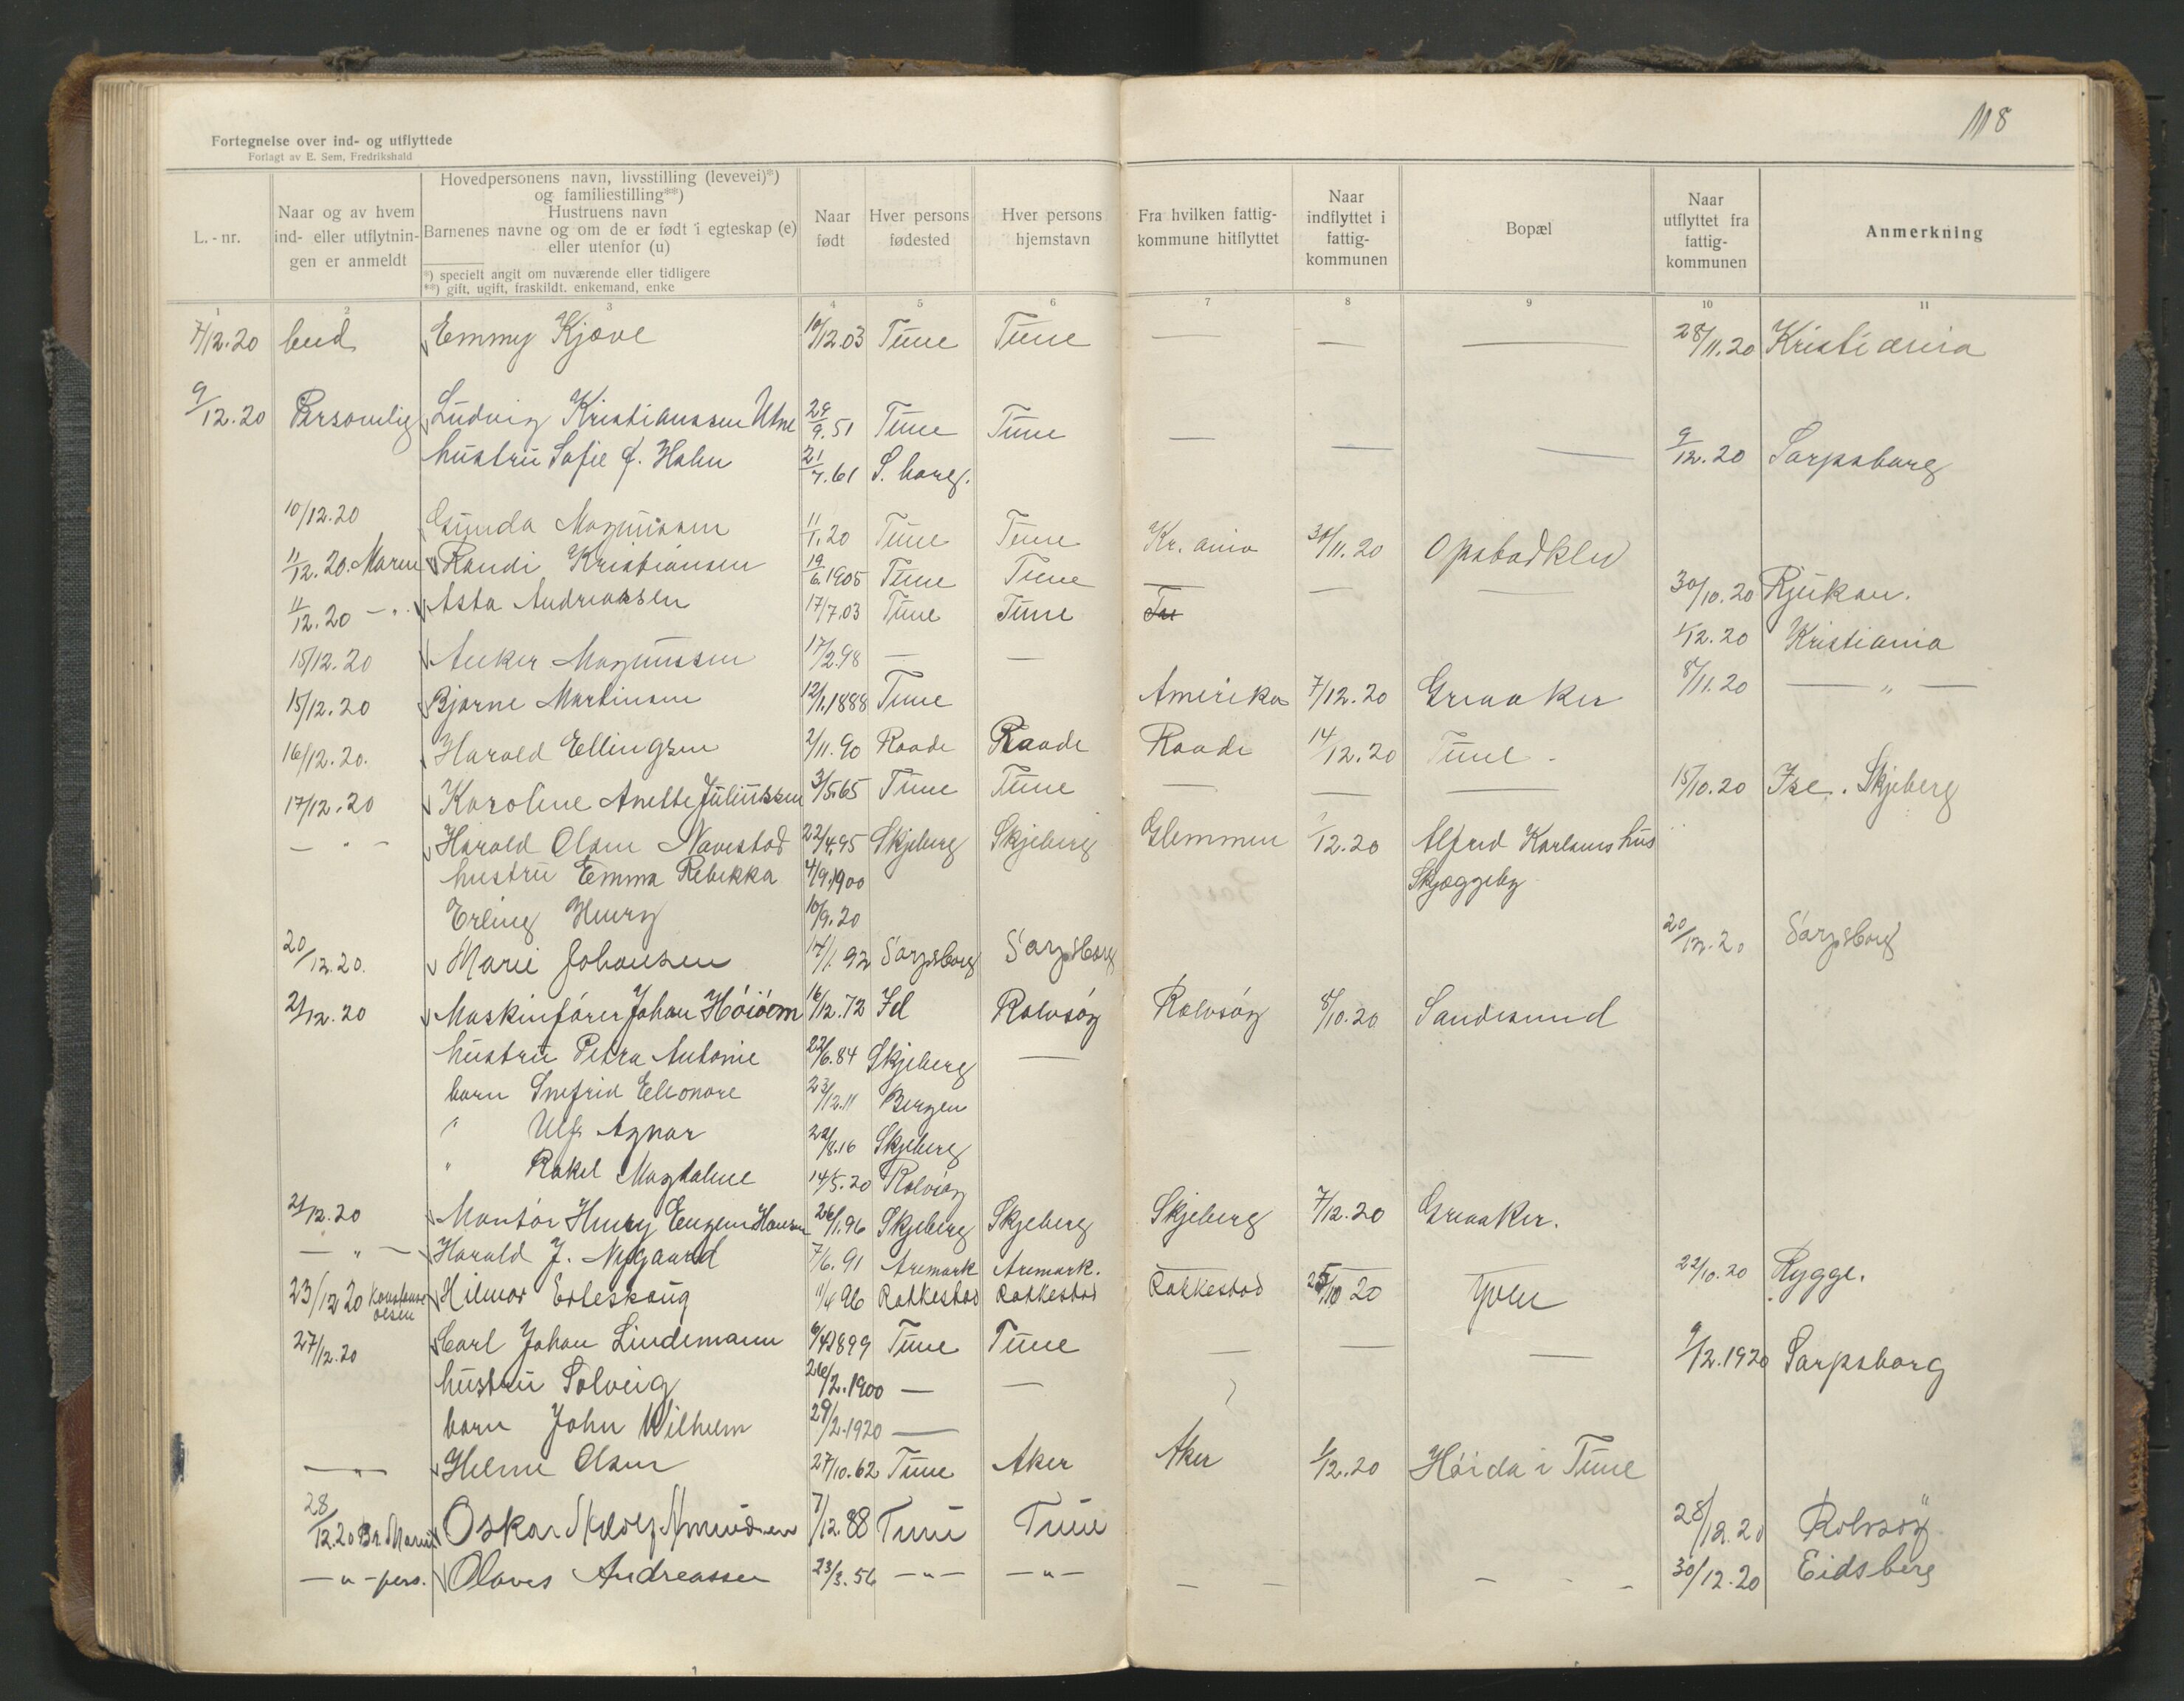 118
Fortegnelse over ind- og utflyttede
Forlagt av E. Sem, Fredrikshald
L.-nr. Naar og av hvem ind- eller utflytnin-gen er anmeldt Hovedpersonens navn, livsstilling (levevei)*) og familiestilling**) Hustruens navn Barnenes navne og om de er født i egteskap (e) eller utenfor (u) *) specielt angit om nuværende eller tidligere **) gift, ugift, fraskildt. enkemand, enke Naar født Hver persons fødested Hver persons hjemstavn Fra hvilken fattig-kommune hitflyttet Naar indflyttet i fattig-kommunen Bopæl Naar utflyttet fra fattig-kommunen Anmerkning
1 2 3 4 5 6 7 8 9 10 11
7/12.20 bud Emmy Kjøve 10/12.03 Tune Tune — — — 28/11.20 Kristiania
9/12.20 Personlig Ludvig Kristianssen Utne 29/9.51 Tune Tune — — — 9/12.20 Sarpsborg
hustru Sofie f. Holm 21/7.61 S.borg.
10/12.20 Gunda Magnussen 11/1.20 Tune Tune Kr.ania 30/11.20 Opstadklev
11/12.20. Maren Randi Kristiansen 19/6.1905 Tune Tune — — — 30/10.20 Rjukan.
11/12.20 —"— Asta Andreassen 17/7.03 Tune Tune 1/12.20 Kristiania
15/12.20 Anker Magnussen 17/2.98 — — 8/11.20 — " —
15/12.20 Bjarne Martinsen 12/1.1888 Tune Amerika 7/12.20 Greaaker
16/12.20. Harald Ellingsen 2/11.90 Raade Raade Raade 14/12.20 Tune -
17/12.20 Karoline Anette Juliussen 3/5.65 Tune Tune — — — 15/10.20 Ise. Skjeberg
— " — Harald Olsen Navestad 22/4.95 Skjeberg Skjeberg Glemmen 1/12.20 Alfred Karlsens hus
hustru Emma Rebekka 4/9.1900 Skjæggeby
Erling Henry 10/9.20
20/12.20. Marie Johansen 17/1.92 Sarpsborg Sarpsborg 20/12.20 Sarpsborg
21/12.20 Maskinfører Johan Höiöem 16/12.72 Id Rolvsöy Rolvsöy 8/10.20 Sandesund
hustru Petra Antonie 22/6.84 Skjeberg —
barn Snefrid Elleonore 23/12.11 Bergen
" Ulf Agnar 22/8.16 Skjeberg
" Rakel Magdalene 14/5.20 Rolvsöy
21/12.20 Montör Henry Eugen Hansen 26/1.96 Skjeberg Skjeberg Skjeberg 7/12.20 Greaaker.
— " — Harald J. Nygaard 7/6.91 Aremark Aremark. — — — 22/10.20 Rygge.
23/12 20 Konstanse Olsen Hilmar Erteskoug 11/4 96 Rakkestad Rakkestad Rakkestad 25/10 20 Yven
27/12.20 Carl Johan Lindemann 6/4.1899 Tune Tune — — — 9/12.1920 Sarpsborg
hustru Solveig 26/2.1900 — —
barn John Wilhelm 29/2.1920 —
— " — Helene Olsen 27/10.62 Tune Aker Aker 1/12.20 Höida i Tune
28/12.20 Br. Marius Oskar Adolf Amundsen 7/12.88 Tune Tune 28/12.20 Rolvsöy
— " — pers. Olaves Andreassen 23/3.56 — " — — " — — — — — — 30/12.20 Eidsberg